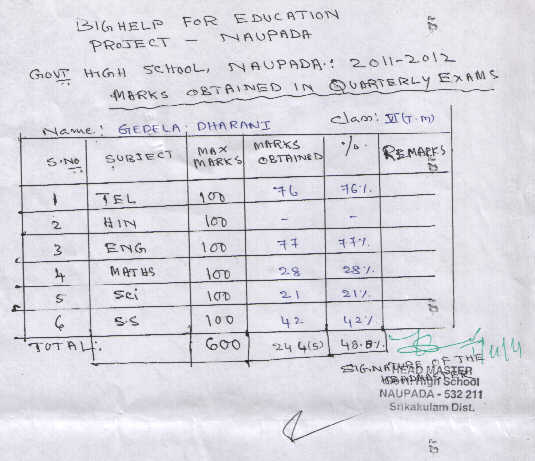 BIGHELP FOR EDUCATION
PROJECT - NAUPADA
GOVT HIGH SCHOOL, NAUPADA: 2011-2012
MARKS OBTAINED IN QUARTERLY EXAMS
Name: GEDELA. DHARANI class: VI (T.M)
S.NO SUBJECT MAX MARKS MARKS OBTAINED % REMARKS
1 TEL 100 76 76%
2 HIN 100 - -
3 ENG 100 77 77%
4 MATHS 100 28 28%
5 Sci 100 21 21%
6 S.S 100 42 42%
TOTAL: 600 244(5) 48.8%
SIGNATURE OF THE
HEADMASTER
HEAD MASTER
High School
NAUPADA - 532 211
Srikakulam Dist.